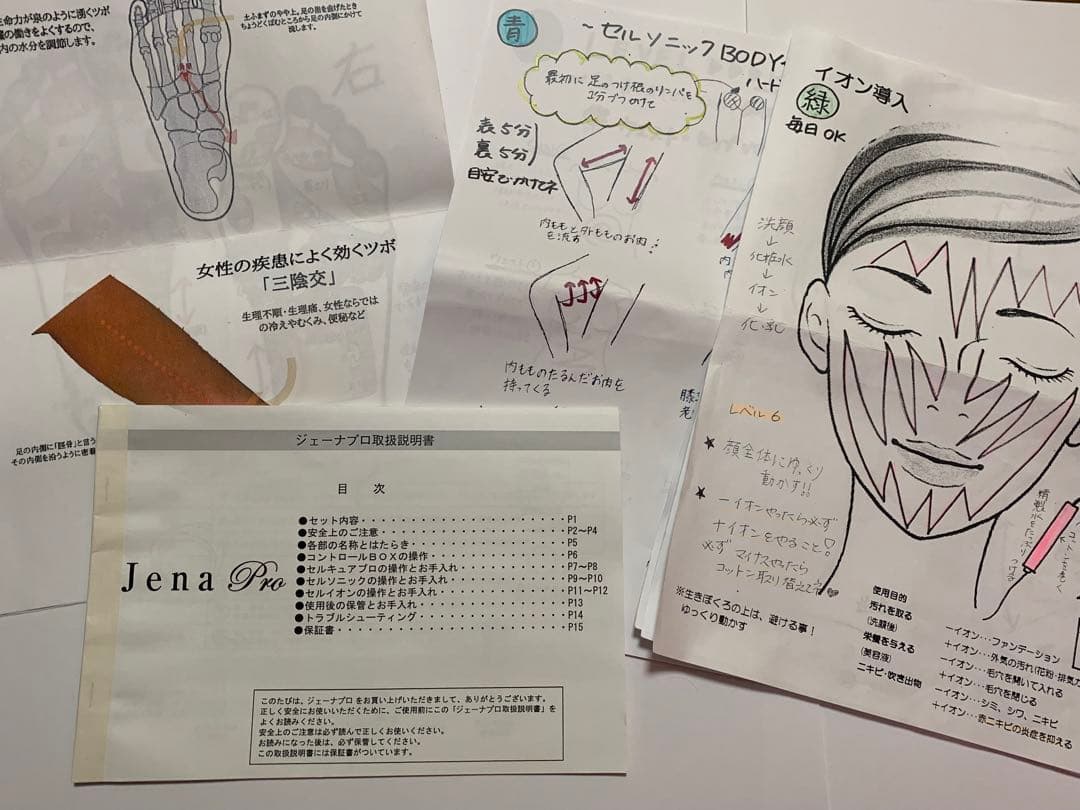 生命力が泉のように湧くツボ
の働きをよくするので、
内の水分を調節します。
土ふまずのやや上。足の指を曲げたとき
ちょうどくぼむところから足の内側にかけて
流します。
右
女性の疾患によく効くツボ
「三陰交」
生理不順・生理痛、女性ならでは
の冷えやむくみ、便秘など
足の内側に「脛骨」と言う
その内側を沿うように密着
青
～セルソニックBODY
ハード
最初に足のつけ根のリンパを
1分づつかけて
表5分
裏5分
目安でかけてネ
内ももと外もものお肉
を流す
内ももの たるんだお肉を
持ってくる
イオン導入
緑
毎日OK
洗顔
↓
化粧水
↓
イオン
↓
化・乳
レベル6
★顔全体にゆっくり
動かす!!
★ーイオンやったら必ず
+イオンをやること!
必ずマイナスやったら
コットン取り替えてネ
※生きぼくろの上は、避ける事！
ゆっくり動かす
精製水をたっぷりつける
使用目的
汚れを取る
(洗顔後)
栄養を与える
(美容液)
ニキビ・吹き出物
ーイオン…ファンデーション
+イオン…外気の汚れ(花粉・排気
ーイオン…毛穴を開いて入れる
+イオン…毛穴を閉じる
ーイオン…シミ、シワ、ニキビ
+イオン…赤ニキビの炎症を抑える
ジェーナプロ取扱説明書
目 次
●セット内容・・・・・・・・・・・・・・・・・・P1
●安全上のご注意・・・・・・・・・・・・・・・・P2～P4
●各部の名称とはたらき・・・・・・・・・・・・・P5
●コントロールBOXの操作・・・・・・・・・・・・P6
●セルキュアプロの操作とお手入れ・・・・・・・・P7～P8
●セルソニックの操作とお手入れ・・・・・・・・・P9～P10
●セルイオンの操作とお手入れ・・・・・・・・・・P11～P12
●使用後の保管とお手入れ・・・・・・・・・・・・P13
●トラブルシューティング・・・・・・・・・・・・P14
●保証書・・・・・・・・・・・・・・・・・・・・P15
Jena Pro
このたびは、ジェーナプロをお買い上げいただきまして、ありがとうございます。
正しく安全にお使いいただくために、ご使用前にこの「ジェーナプロ取扱説明書」を
よくお読みください。
安全上のご注意は必ず読んで正しくお使いください。
お読みになった後は、必ず保管してください。
この取扱説明書には保証書がついています。